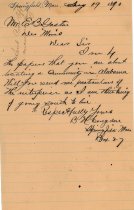 Springfield, Mass. Aug 19 1890
Mr. E. C.
Des Moines
Dear Sir
I see by
the papers that you are about
locating a Community in Alabama
that you send me particulars of
the enterprise as I am thinking
of going south to live
Respectfully Yours
B. H.
Springfield Mass
Box 27